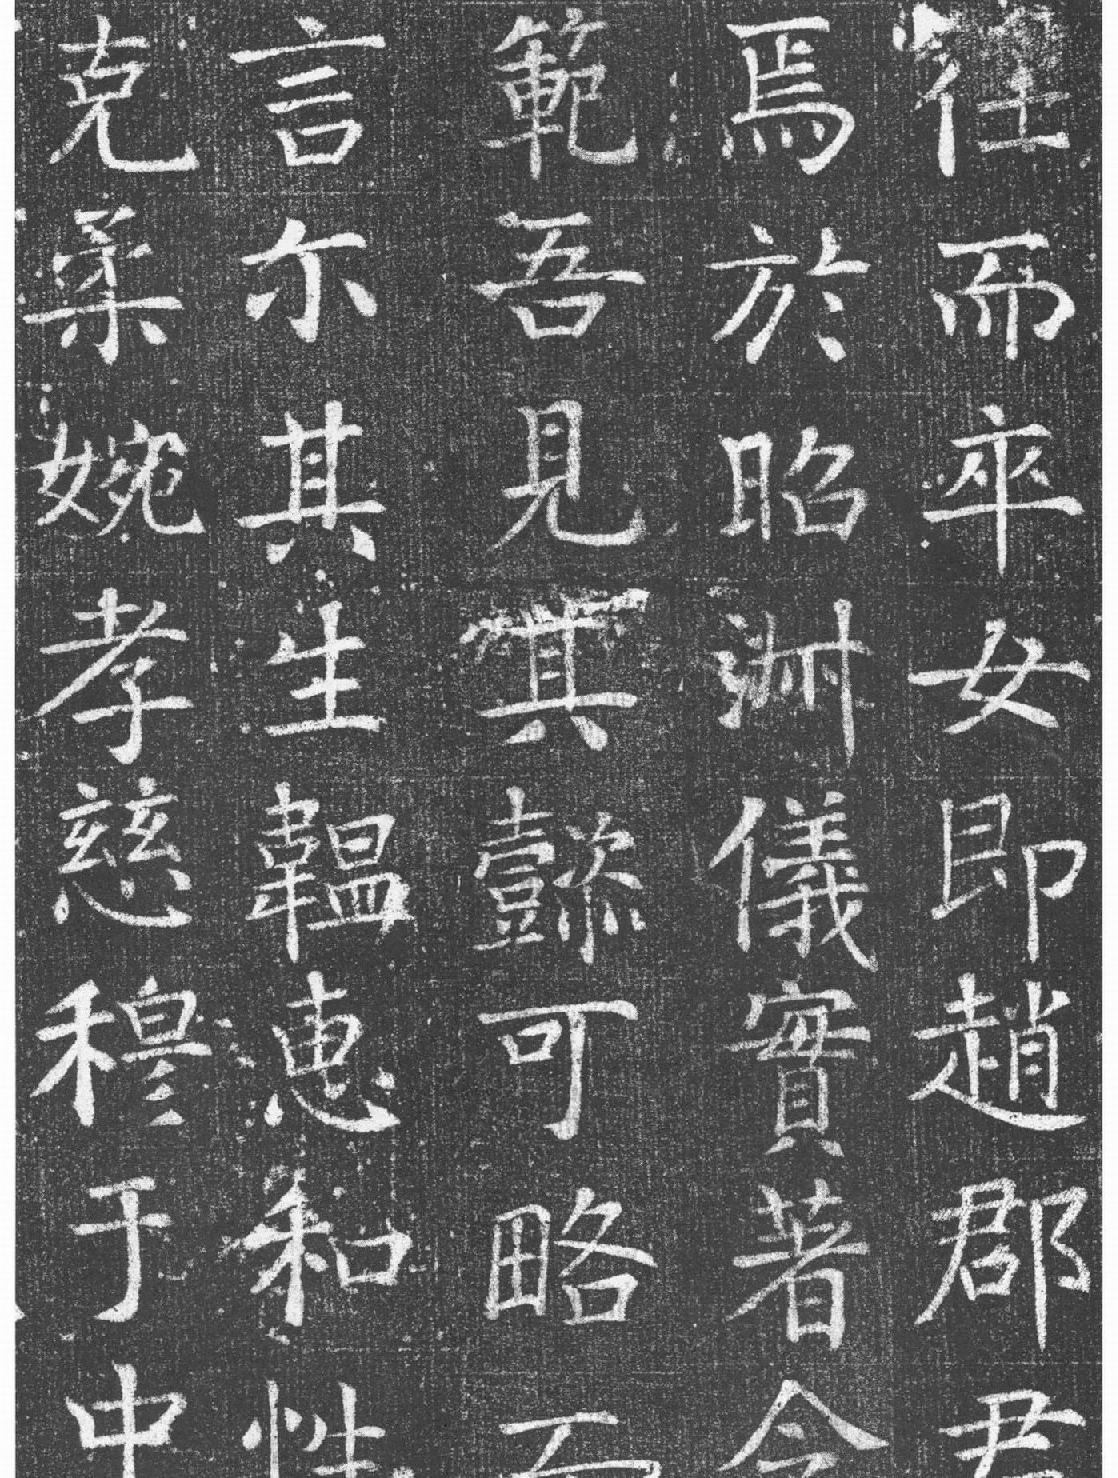 往而卒女即趙郡君
焉於昭淋儀實著令
範吾見其懿可略而
言尒其生韞惠和性
克柔婉孝慈穆于中